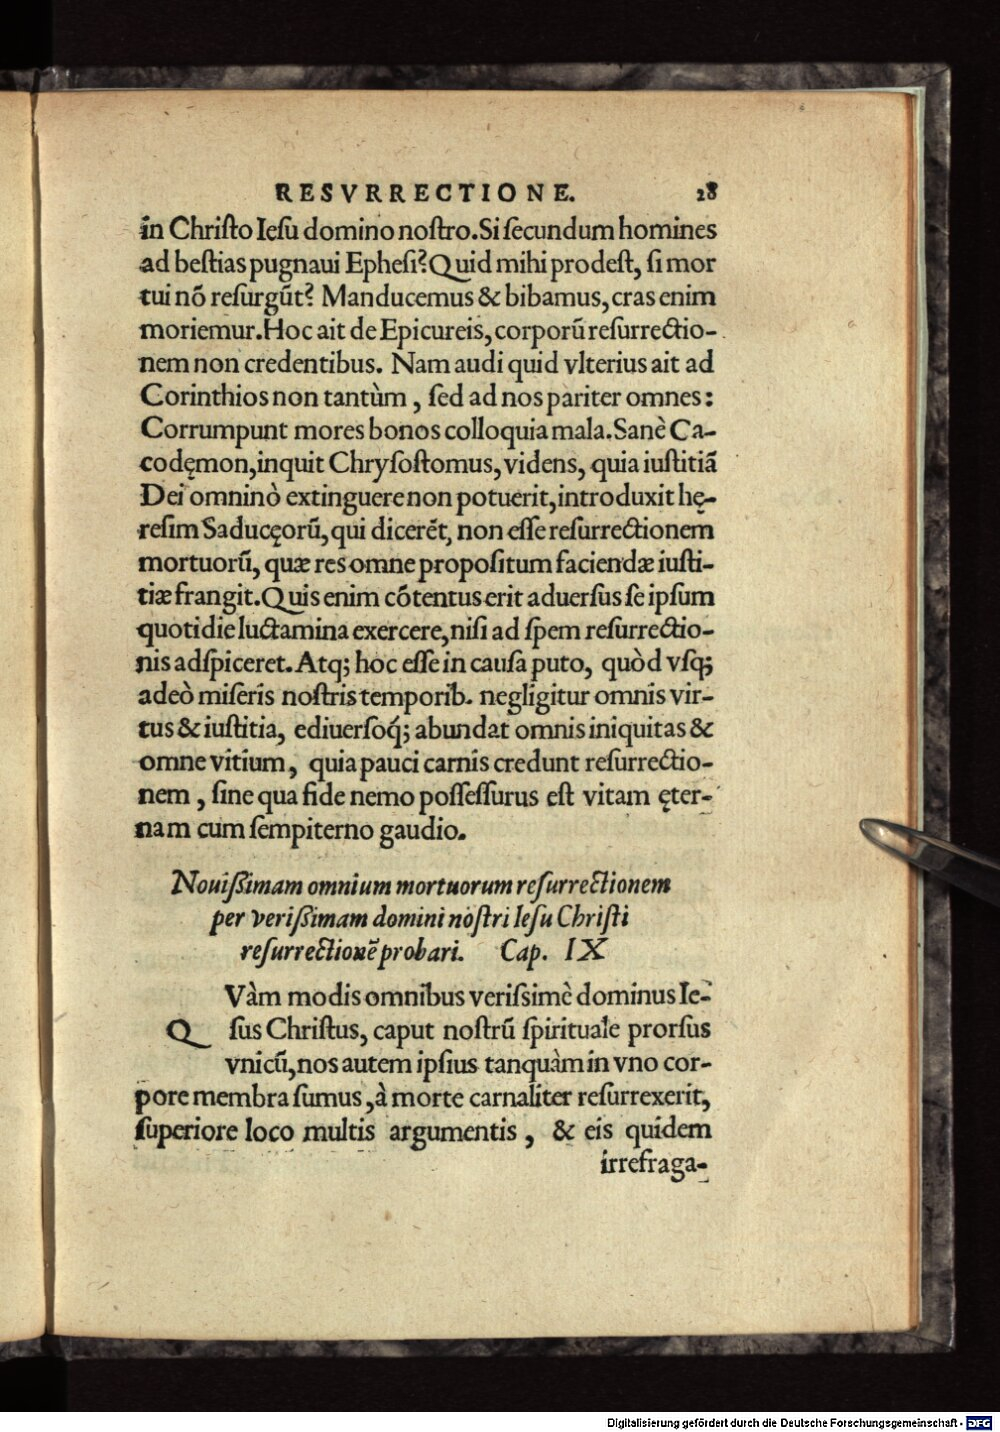 RESVRRECTIONE. 28
in Chriſto Ieſu domino noſtro. Si ſecundum homines
ad beſtias pugnaui Epheſi? Quid mihi prodeſt, ſi mor
tui nõ reſurgũt? Manducemus & bibamus, cras enim
moriemur. Hoc ait de Epicureis, corporũ reſurrectio-
nem non credentibus. Nam audi quid vlterius ait ad
Corinthios non tantùm, ſed ad nos pariter omnes:
Corrumpunt mores bonos colloquia mala. Sanè Ca-
codęmon, inquit Chryſoſtomus, videns, quia iuſtitiã
Dei omninò extinguere non potuerit, introduxit hę-
reſim Saducęorũ, qui dicerẽt, non eſſe reſurrectionem
mortuorũ, quæ res omne propoſitum faciendæ iuſti-
tiæ frangit. Quis enim cõtentus erit aduerſus ſe ipſum
quotidie luctamina exercere, niſi ad ſpem reſurrectio-
nis adſpiceret. Atq; hoc eſſe in cauſa puto, quòd vſq;
adeò miſeris noſtris temporib. negligitur omnis vir-
tus & iuſtitia, ediuerſoq́; abundat omnis iniquitas &
omne vitium, quia pauci carnis credunt reſurrectio-
nem, ſine qua fide nemo poſſeſſurus eſt vitam ęter-
nam cum ſempiterno gaudio.
Nouißimam omnium mortuorum reſurrectionem
per verißimam domini noſtri Ieſu Chriſti
reſurrectionẽ probari. Cap. IX
QVàm modis omnibus veriſsimè dominus Ie-
ſus Chriſtus, caput noſtrũ ſpirituale prorſus
vnicũ, nos autem ipſius tanquàm in vno cor-
pore membra ſumus, à morte carnaliter reſurrexerit,
ſuperiore loco multis argumentis, & eis quidem
irrefraga-
Digitalisierung gefördert durch die Deutsche Forschungsgemeinschaft - DFG